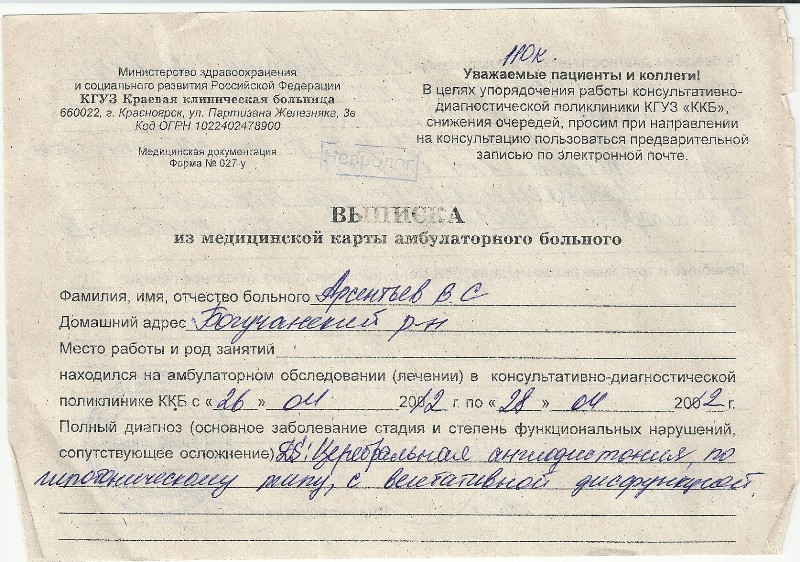 110к
Министерство здравоохранения
и социального развития Российской Федерации
КГУЗ Краевая клиническая больница
660022, г. Красноярск, ул. Партизана Железняка, 3в
Код ОГРН 1022402478900
Медицинская документация
Форма № 027-у
Уважаемые пациенты и коллеги!
В целях упорядочения работы консультативно-
диагностической поликлиники КГУЗ «ККБ»,
снижения очередей, просим при направлении
на консультацию пользоваться предварительной
записью по электронной почте.
ВЫПИСКА
из медицинской карты амбулаторного больного
Фамилия, имя, отчество больного Арсентьев В.С
Домашний адрес Богучанский р-н
Место работы и род занятий
находился на амбулаторном обследовании (лечении) в консультативно-диагностической
поликлинике ККБ с « 26 » 04 2012 г. по « 28 » 04 2012 г.
Полный диагноз (основное заболевание стадия и степень функциональных нарушений,
сопутствующее осложнение) DS: Церебральная ангиодистония, по
гипотоническому типу, с вегетативной дисфункцией.